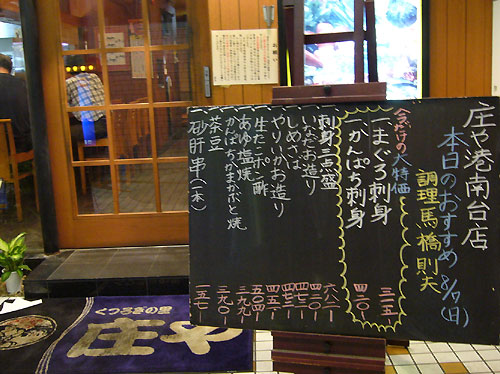 庄や港南台店
本日のおすすめ 8/9(日)
調理馬橋則夫
今だけの大特価
一まぐろ刺身 三一五
一かんぱち刺身 四二〇
刺身三点盛 六八二
一いなだお造り 四二〇
一しめさば
一やりいかお造り
一生たこポン酢 五〇四
一あゆ塩焼 三九九
一かんぱちかまかぶと焼
一茶豆 三九〇
一砂肝串(一本) 一五七
くつろぎの里
庄や
お願い